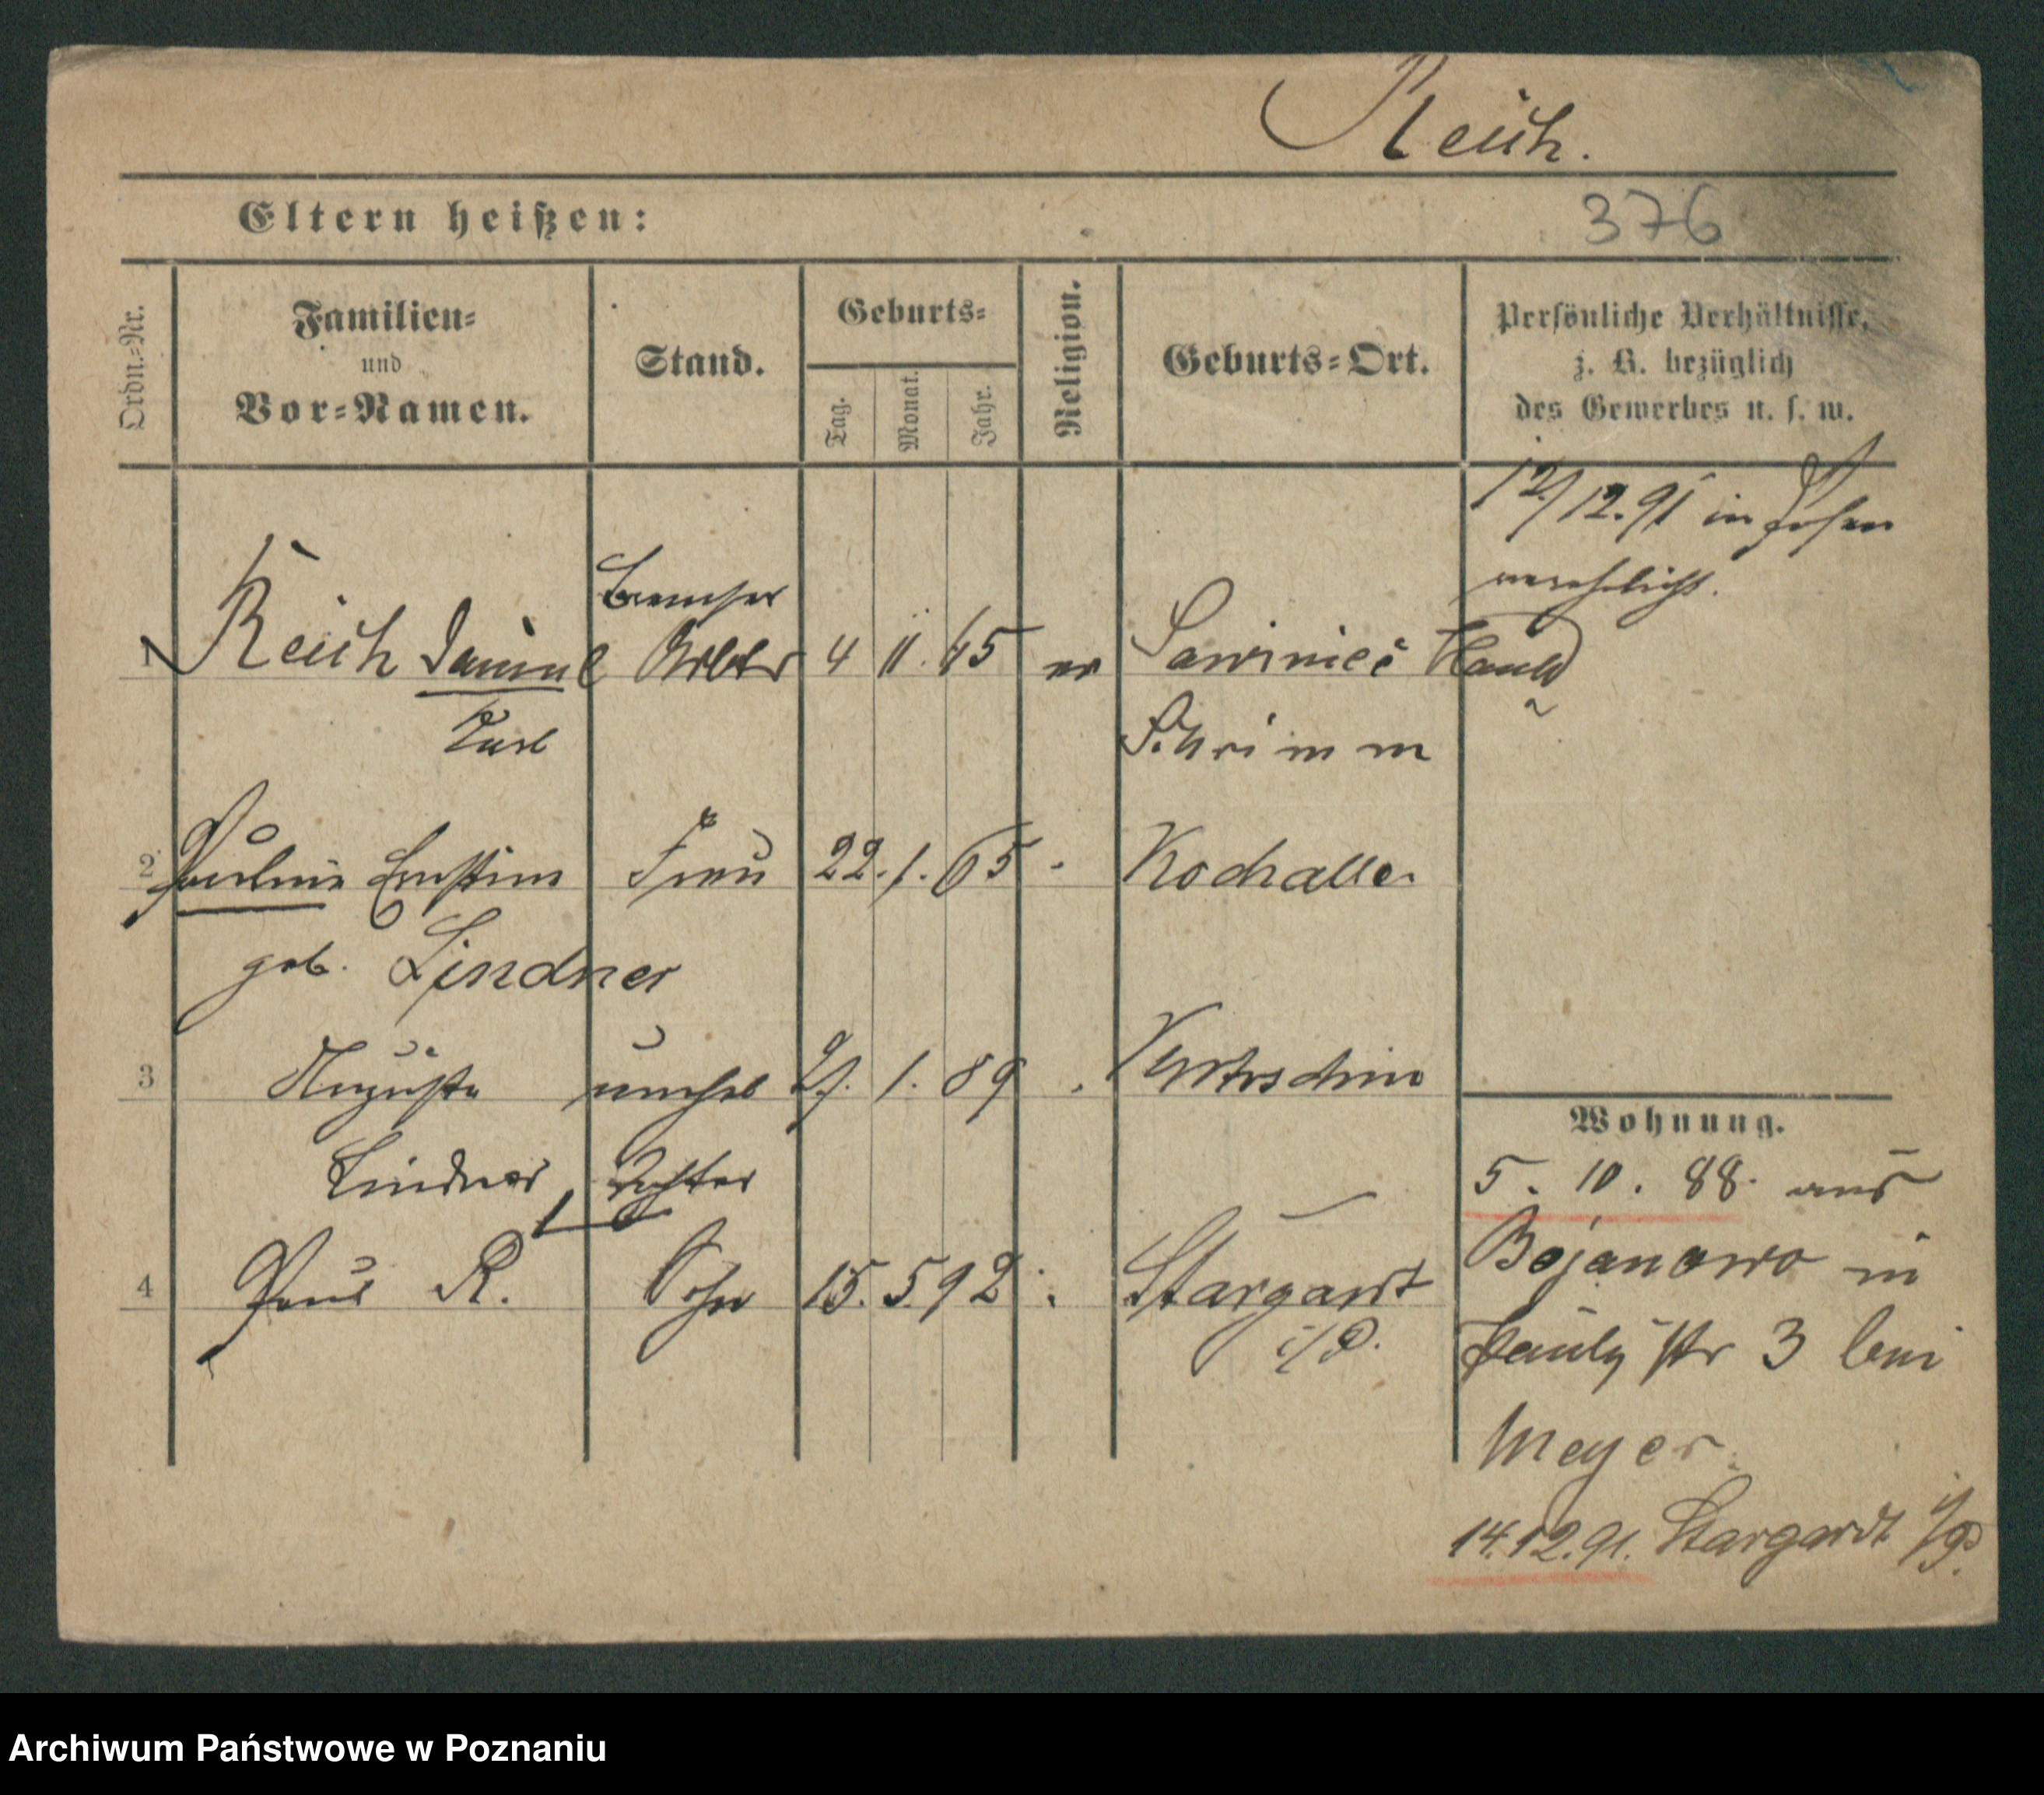 Reich.
Eltern heißen:
376
Ordn.-Nr.
Familien-
und
Vor-Namen.
Stand.
Geburts-
Tag.
Monat.
Jahr.
Religion.
Geburts-Ort.
Persönliche Verhältnisse,
z. B. bezüglich
des Gewerbes u. s. w.
12/12.91 in Posen
verehelicht.
Bremser
1 Reich Daniel Arbtr 4 11. 65 ev Sawiniec
Karl
Schrimm
2 Pauline Ernstine Frau 22. 1. 65 Kochalle.
geb. Lindner
3 Auguste unehel 1. 89
Lindner Tochter
4 Paul R. Sohn 15. 5. 92 Stargardt
i/P.
Wohnung.
5. 10. 88. aus
Bojanowo in
str 3 bei
Meyer.
14.12.91. Stargardt i/P.
Archiwum Państwowe w Poznaniu